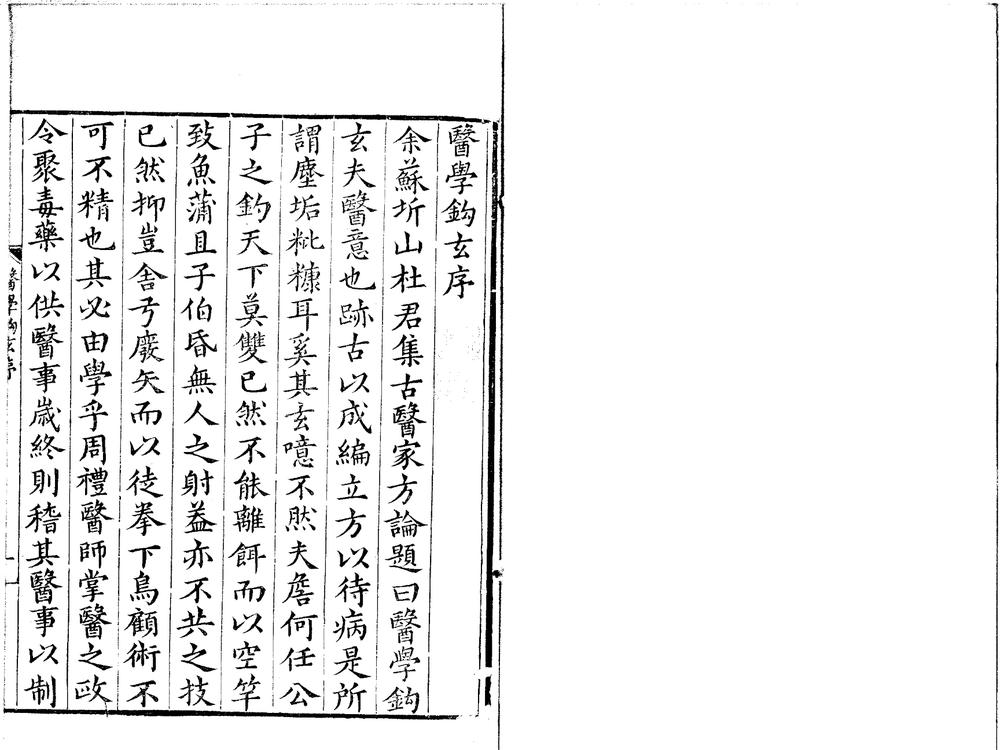 醫學鈎玄序
余蘇圻山杜君集古醫家方論題曰醫學鈎
玄夫醫意也跡古以成編立方以待病是所
謂塵垢粃糠耳奚其玄噫不然夫詹何任公
子之釣天下莫雙已然不能離餌而以空竿
致魚蒲且子伯昏無人之射益亦不共之技
已然抑豈舍弓廢矢而以徒拳下鳥顧術不
可不精也其必由學乎周禮醫師掌醫之政
令聚毒藥以供醫事歲終則稽其醫事以制
醫學鈎玄序
一